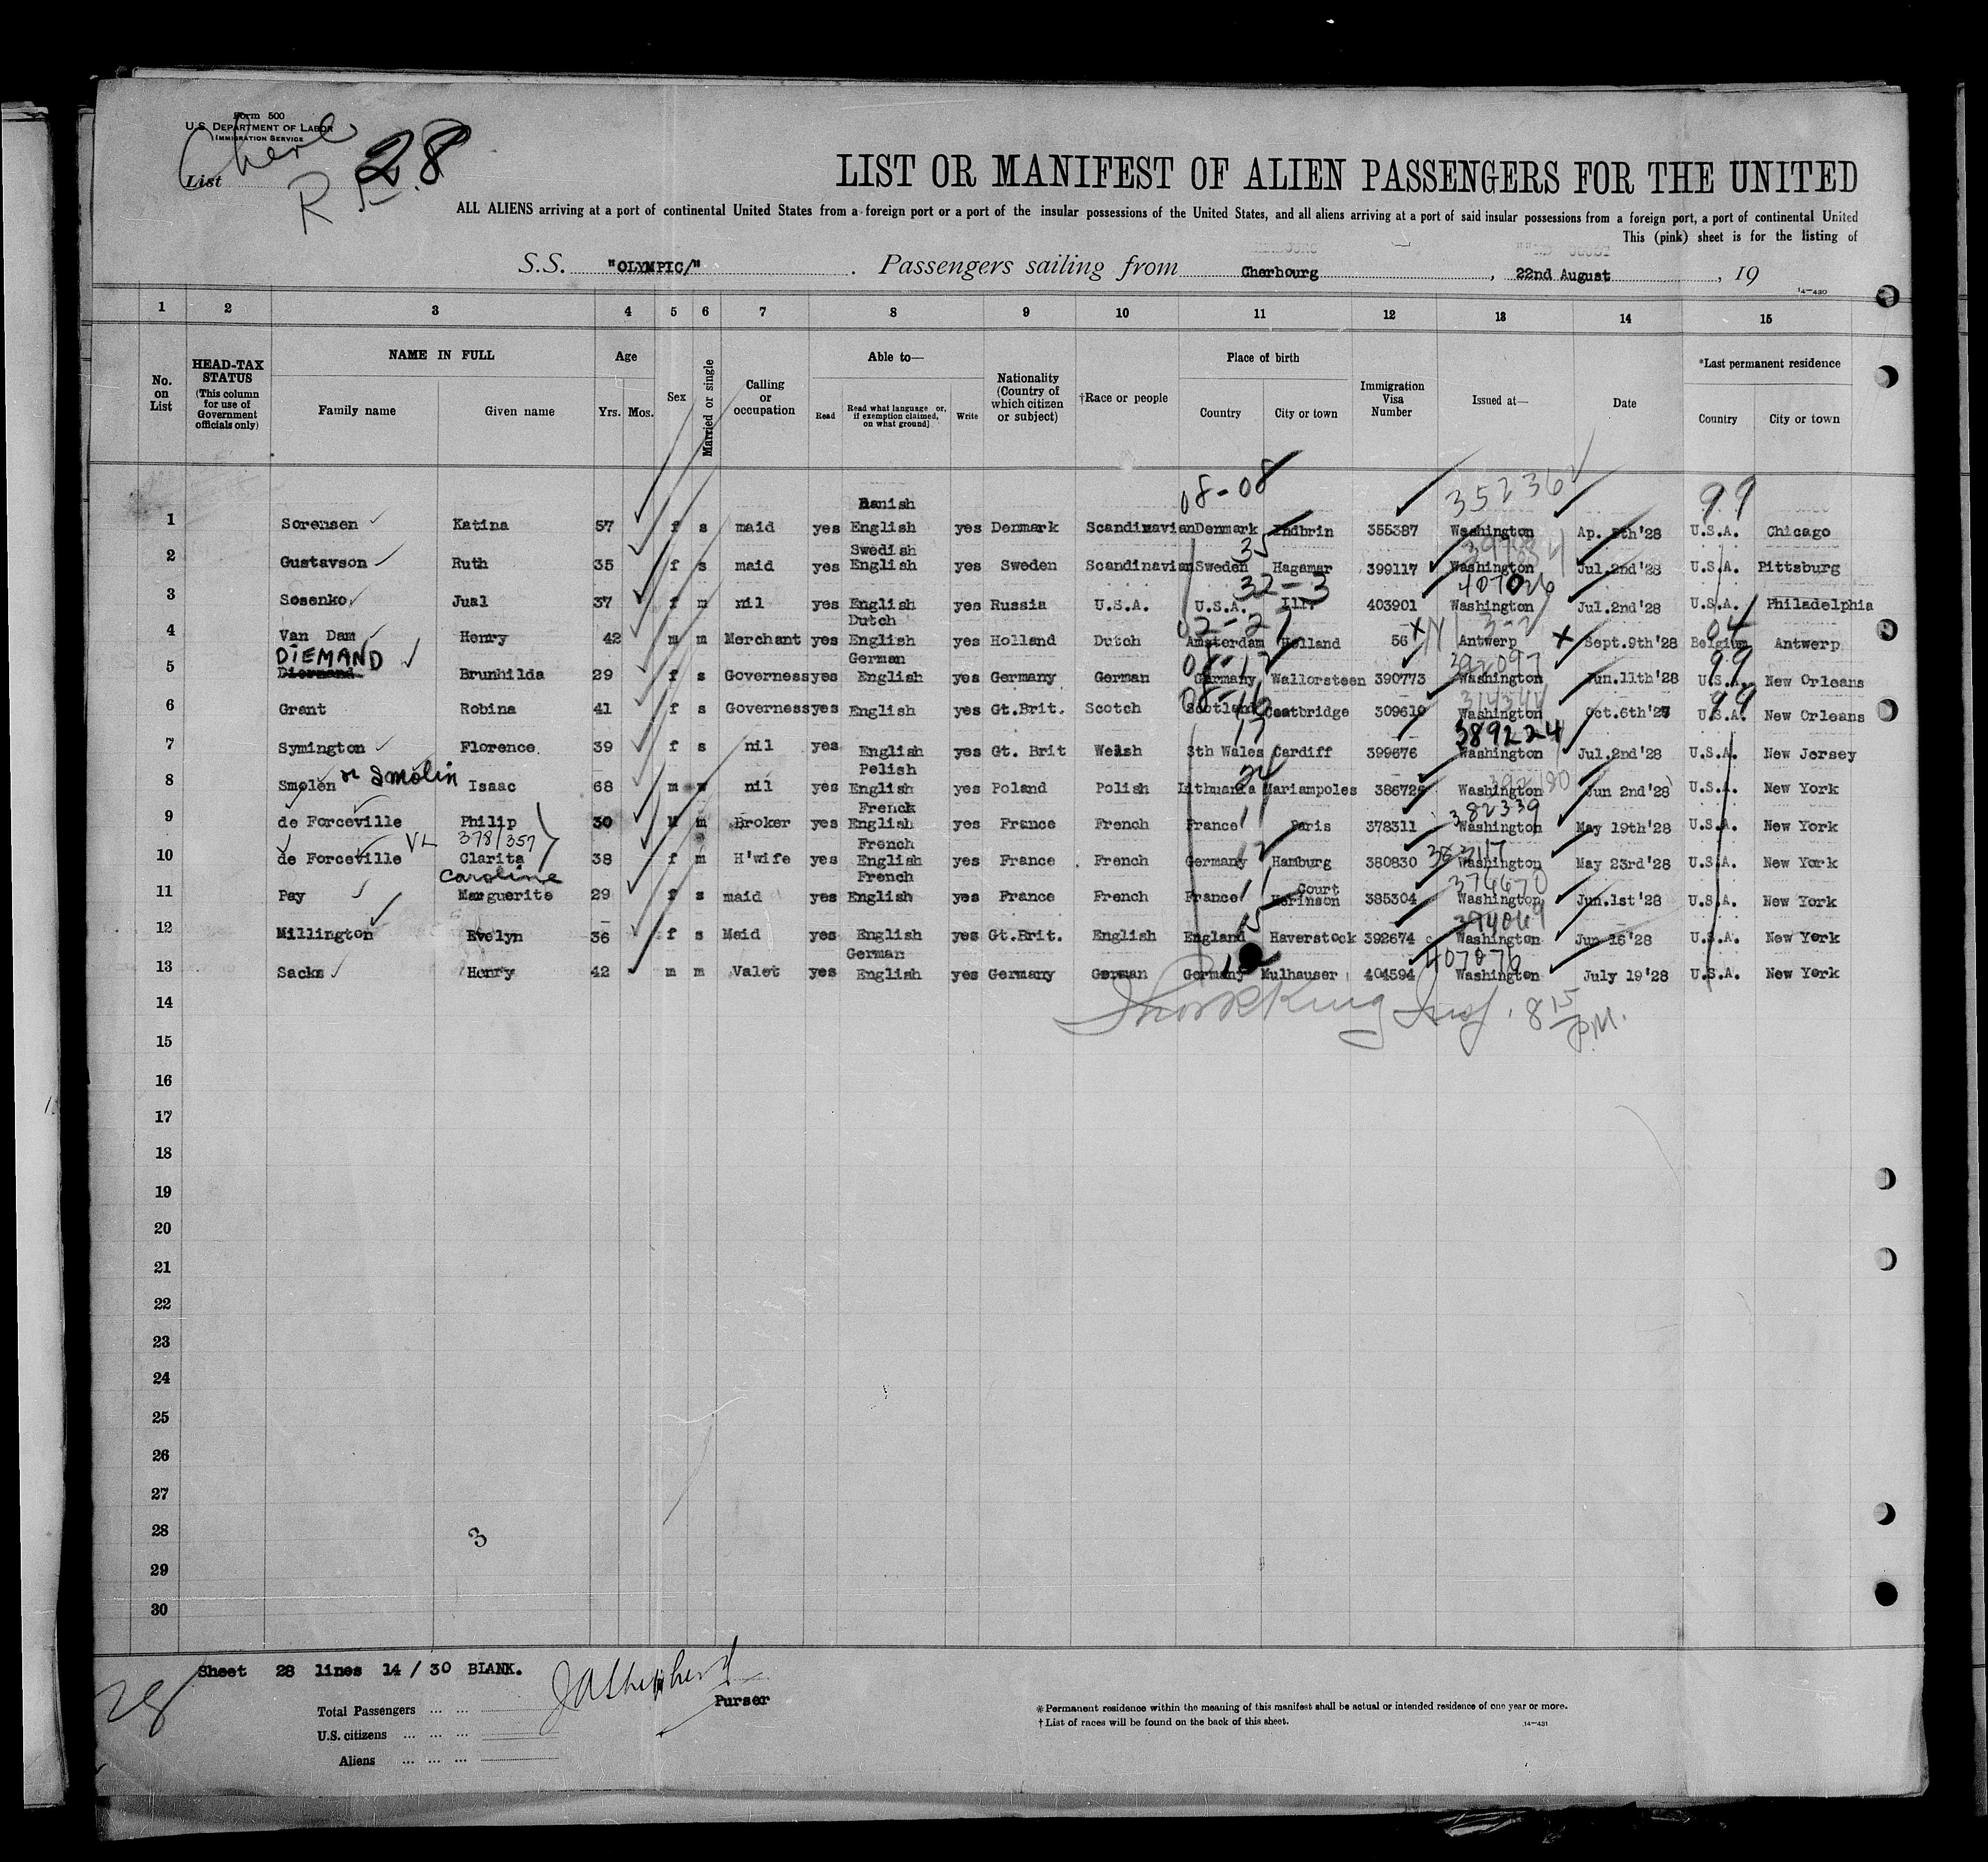 Form 500
U.S. DEPARTMENT OF LABOR
IMMIGRATION SERVICE
List 28
LIST OR MANIFEST OF ALIEN PASSENGERS FOR THE UNITED
ALL ALIENS arriving at a port of continental United States from a foreign port or a port of the insular possessions of the United States, and all aliens arriving at a port of said insular possessions from a foreign port, a port of continental United
This (pink) sheet is for the listing of
S.S. "OLYMPIC/" . Passengers sailing from Cherbourg , 22nd August , 19
14—430
1 2 3 4 5 6 7 8 9 10 11 12 13 14 15
No. on List
HEAD-TAX STATUS
(This column for use of Government officials only)
NAME IN FULL
Family name Given name
Age
Yrs. Mos.
Sex
Married or single
Calling or occupation
Able to—
Read Read what language or, if exemption claimed, on what ground] Write
Nationality (Country of which citizen or subject)
†Race or people
Place of birth
Country City or town
Immigration Visa Number
Issued at—
Date
*Last permanent residence
Country City or town
08-08 35236 99
Danish
1 Sorensen Katina 57 f s maid yes English yes Denmark Scandinavian Denmark 355387 Washington Ap. 5th'28 U.S.A. Chicago
Swedish 35
2 Gustavson Ruth 35 f s maid yes English yes Sweden Scandinavian Sweden Hagamar 399117 Washington Jul.2nd'28 U.S.A. Pittsburg
32-3 407026
3 Sosenko Jual 37 f m nil yes English yes Russia U.S.A. U.S.A. Ill. 403901 Washington Jul.2nd'28 U.S.A. Philadelphia
Dutch 02-27
4 Van Dam Henry 42 m m Merchant yes English yes Holland Dutch Amsterdam Holland 56 Antwerp Sept.9th'28 Belgium Antwerp
DIEMAND German 392097 99
5 Brunhilda 29 f s Governess yes English yes Germany German Germany Wallorsteen 390773 Washington Jun.11th'28 U.S.A. New Orleans
99
6 Grant Robina 41 f s Governess yes English yes Gt.Brit. Scotch Scotland Coatbridge 309610 Washington Oct.6th'27 U.S.A. New Orleans
17 389224
7 Symington Florence. 39 f s nil yes English yes Gt. Brit Welsh Sth Wales Cardiff 399676 Washington Jul.2nd'28 U.S.A. New Jersey
or Smolin Polish
8 Smolen Isaac 68 m nil yes English yes Poland Polish Lithuania Mariampoles Washington Jun 2nd'28 U.S.A. New York
French 382339
9 de Forceville Philip 30 M m Broker yes English yes France French France Paris 378311 Washington May 19th'28 U.S.A. New York
378/357 French
10 de Forceville Clarita 38 f m H'wife yes English yes France French Germany Hamburg 380830 Washington May 23rd'28 U.S.A. New York
Caroline French 376670
11 Pay Marguerite 29 f s maid yes English yes France French France Court 385304 Washington Jun.1st'28 U.S.A. New York
394069
12 Millington Evelyn 36 f s Maid yes English yes Gt.Brit. English England Haverstock 392674 Washington Jun 16'28 U.S.A. New York
German 407076
13 Sacks Henry 42 m m Valet yes English yes Germany German Germany Mulhauser 404594 Washington July 19'28 U.S.A. New York
14
15
16
17
18
19
20
21
22
23
24
25
26
27
28 3
29
30
Sheet 28 lines 14 / 30 BLANK.
28
Total Passengers ... ...
Purser
U.S. citizens ... ... ...
Aliens ... ... ...
*Permanent residence within the meaning of this manifest shall be actual or intended residence of one year or more.
†List of races will be found on the back of this sheet.
14—431